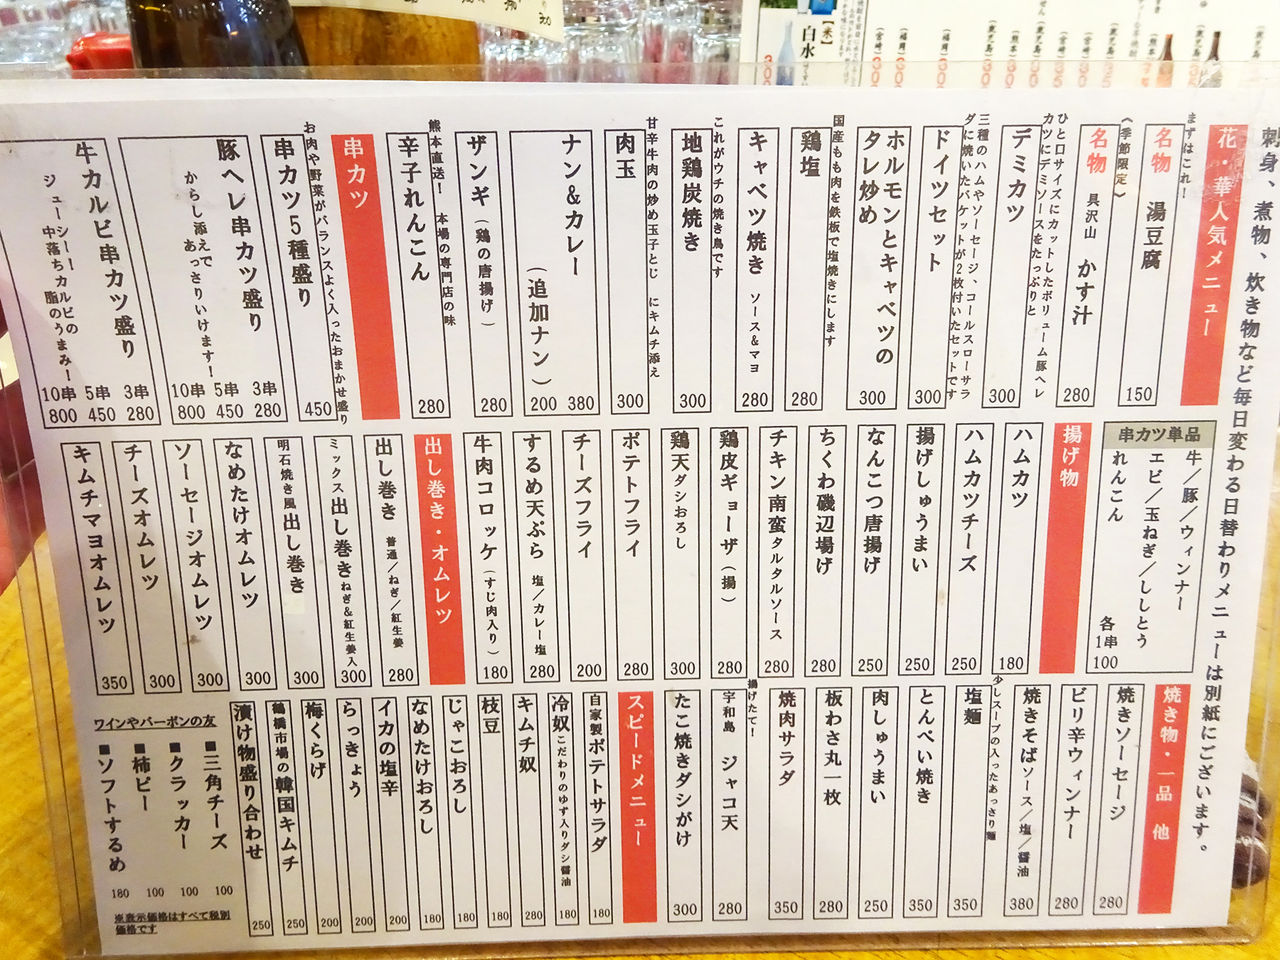 刺身、煮物、炊き物など毎日変わる日替わりメニューは別紙にございます。
花・華人気メニュー
まずはこれ！
名物 湯豆腐
150
《季節限定》
名物 具沢山 かす汁
280
ひと口サイズにカットしたボリューム豚ヘレ
カツにデミソースをたっぷりと
デミカツ
300
三種のハムやソーセージ、コールスローサラ
ダに焼いたバケットが2枚付いたセットです
ドイツセット
300
ホルモンとキャベツの
タレ炒め
300
国産もも肉を鉄板で塩焼きにします
鶏塩
280
キャベツ焼き ソース＆マヨ
280
これがウチの焼き鳥です
地鶏炭焼き
300
甘辛牛肉の炒め玉子とじ にキムチ添え
肉玉
300
ナン＆カレー
380
（追加ナン）
200
ザンギ（鶏の唐揚げ）
280
熊本直送！ 本場の専門店の味
辛子れんこん
280
串カツ
お肉や野菜がバランスよく入ったおまかせ盛り
串カツ5種盛り
450
豚ヘレ串カツ盛り
からし添えで
あっさりいけます！
3串 280
5串 450
10串 800
牛カルビ串カツ盛り
ジューシーカルビの
中落ちカルビの
脂のうまみ！
3串 280
5串 450
10串 800
串カツ単品
牛／豚／ウィンナー
エビ／玉ねぎ／ししとう
れんこん
各1串 100
揚げ物
ハムカツ
180
ハムカツチーズ
250
揚げしゅうまい
250
なんこつ唐揚げ
250
ちくわ磯辺揚げ
280
チキン南蛮タルタルソース
280
鶏皮ギョーザ（揚）
280
鶏天ダシおろし
300
ポテトフライ
280
チーズフライ
200
するめ天ぷら 塩／カレー塩
280
牛肉コロッケ（すじ肉入り）
180
出し巻き・オムレツ
出し巻き 普通／ねぎ／紅生姜
280
ミックス出し巻きねぎ＆紅生姜入
300
明石焼き風出し巻き
300
なめたけオムレツ
300
ソーセージオムレツ
300
チーズオムレツ
300
キムチマヨオムレツ
350
焼き物・一品 他
焼きソーセージ
280
ピリ辛ウィンナー
280
焼きそばソース／塩／醤油
380
少しスープの入ったあっさり麺
塩麺
350
とんぺい焼き
350
肉しゅうまい
250
板わさ丸一枚
280
焼肉サラダ
350
揚げたて！
宇和島 ジャコ天
280
たこ焼きダシがけ
300
スピードメニュー
自家製ポテトサラダ
180
冷奴こだわりのゆず入りダシ醤油
180
キムチ奴
280
枝豆
180
じゃこおろし
180
なめたけおろし
180
イカの塩辛
200
らっきょう
200
梅くらげ
200
鶴橋市場の韓国キムチ
250
漬け物盛り合わせ
250
ワインやバーボンの友
■三角チーズ 100
■クラッカー 100
■柿ピー 100
■ソフトするめ 180
※表示価格はすべて税別
価格です
【米】
白水